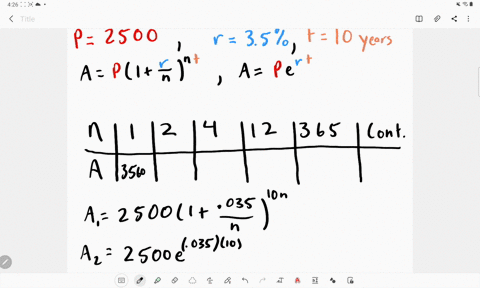 4:26
Title
P = 2500 , r = 3.5%, t = 10 years
A = P(1 + r/n)^nt , A = Pe^rt
n | 1 | 2 | 4 | 12 | 365 | Cont.
A | 3560
A₁ = 2500(1 + .035/n)^10n
A₂ = 2500e^(.035)(10)